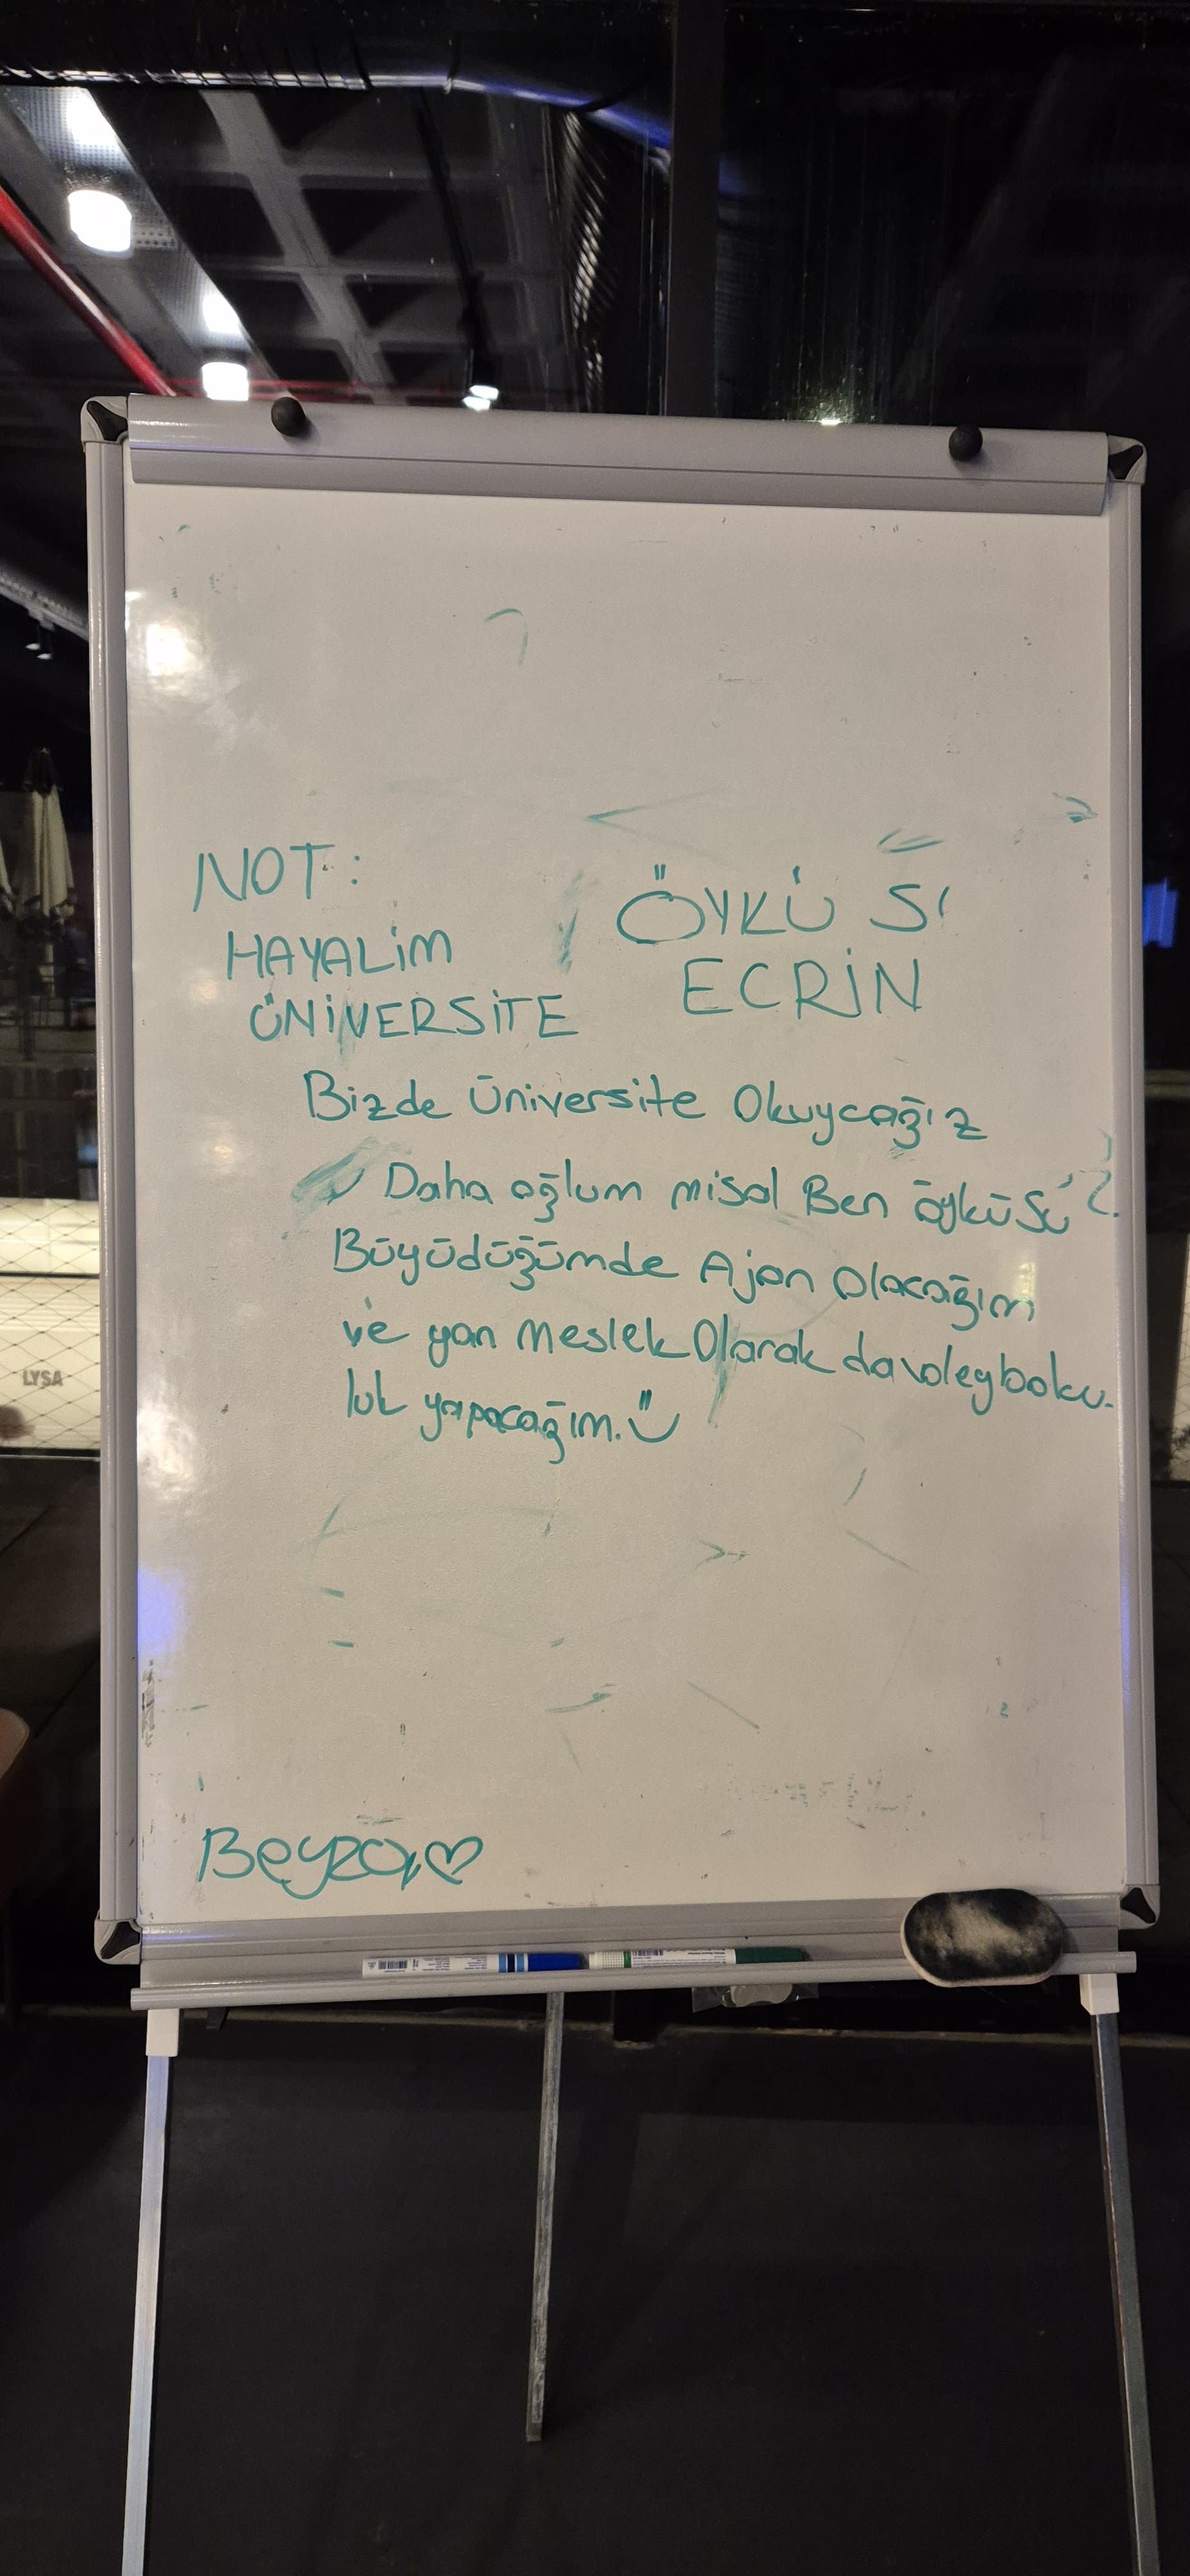 NOT:
HAYALİM
ÜNİVERSİTE
ÖYKÜ
ECRİN
Bizde Üniversite Okuycağız
Daha oğlum misal Ben öykü
Büyüdüğümde Ajan Olacağım
ve yan meslek Olarak da voleybolcu-
luk yapacağım.
Beyza
LYSA